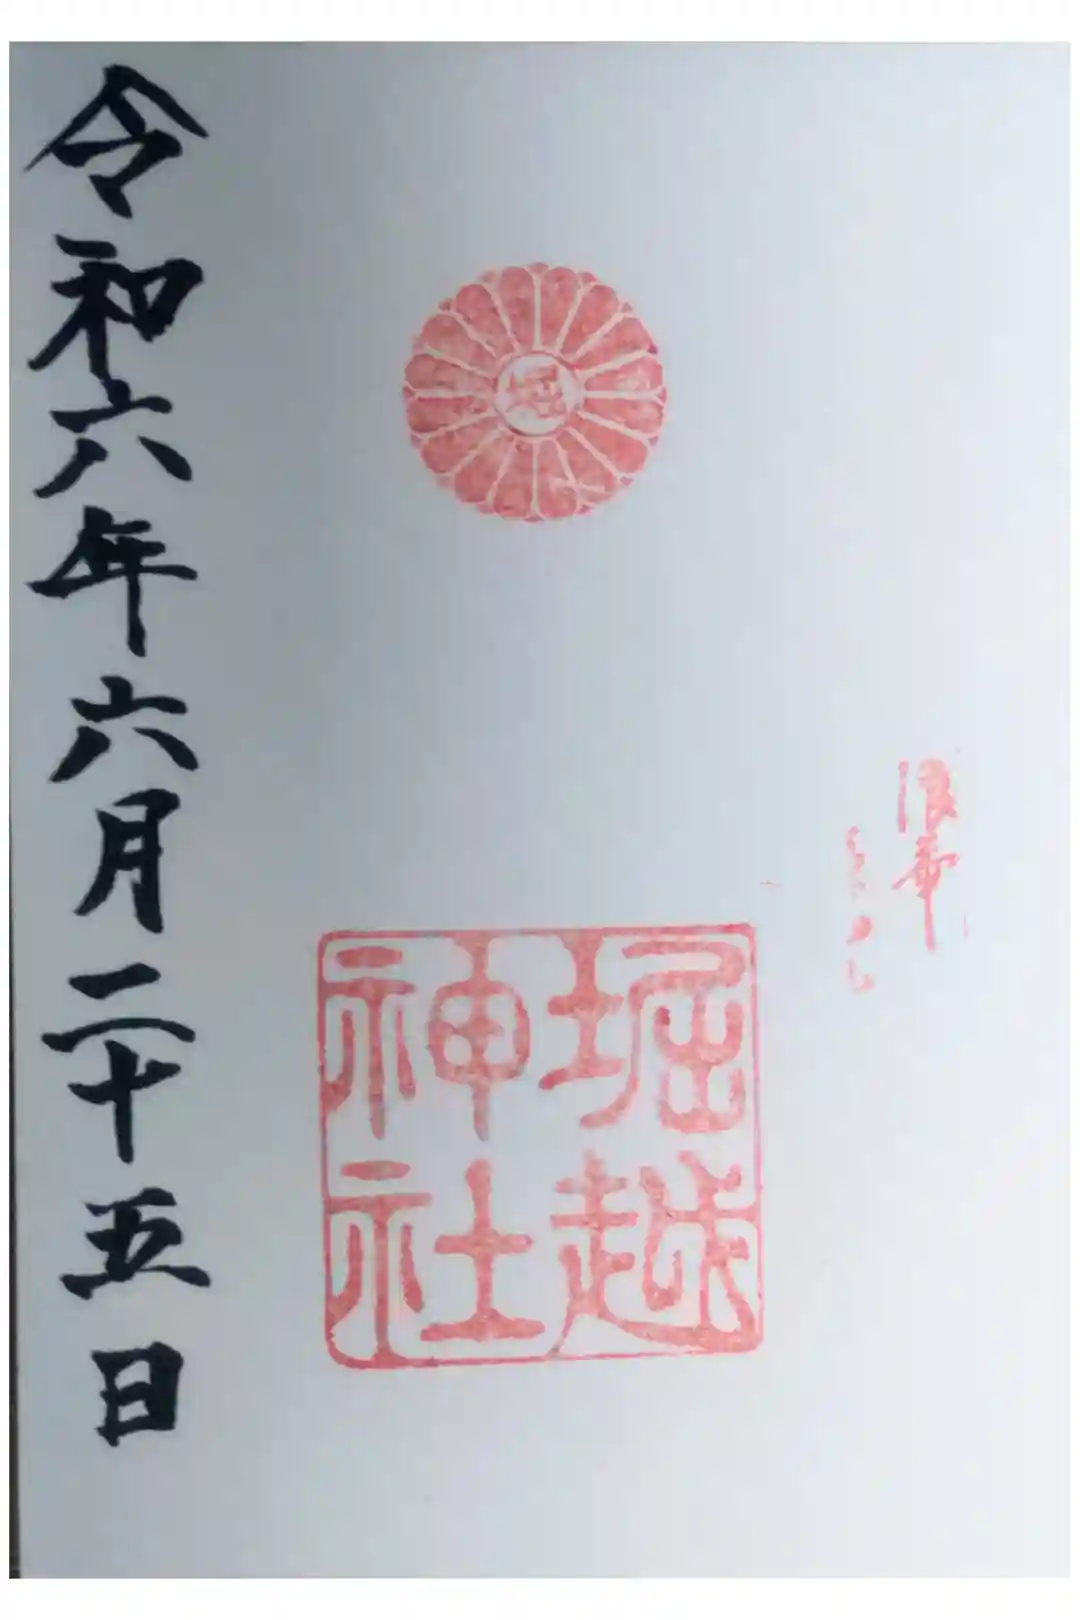 浪華
堀越
神社
令和六年六月二十五日